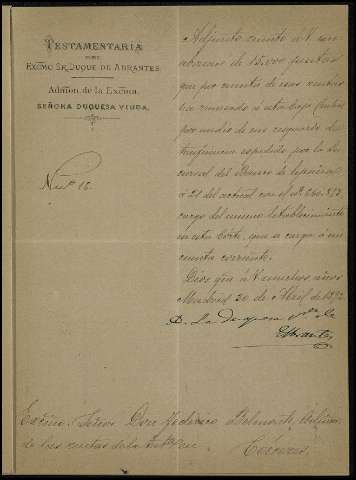 TESTAMENTARIA
DEL
EXCMO SR. DUQUE DE ABRANTES
Admon. de la Excma.
SEÑORA DUQUESA VIUDA.
Num. 16.
Adjunto remito á V. un
abonaré de 15.000 pesetas
que por cuenta de sus rentas
ha remesado á esta Caja Central
por medio de un resguardo de
trasferencia expedido por la Su
cursal del Banco de
á 21 del actual con el nº
cargo del mismo Establecimiento
en esta Corte, que se cargo á mi
cuenta corriente.
Dios gue á V. muchos años
Madrid 30 de Abril de 1892
La Duquesa Vda de
Abrantes
Excmo. Señor Don Federico Belmonte,
de las rentas de la
Cáceres.